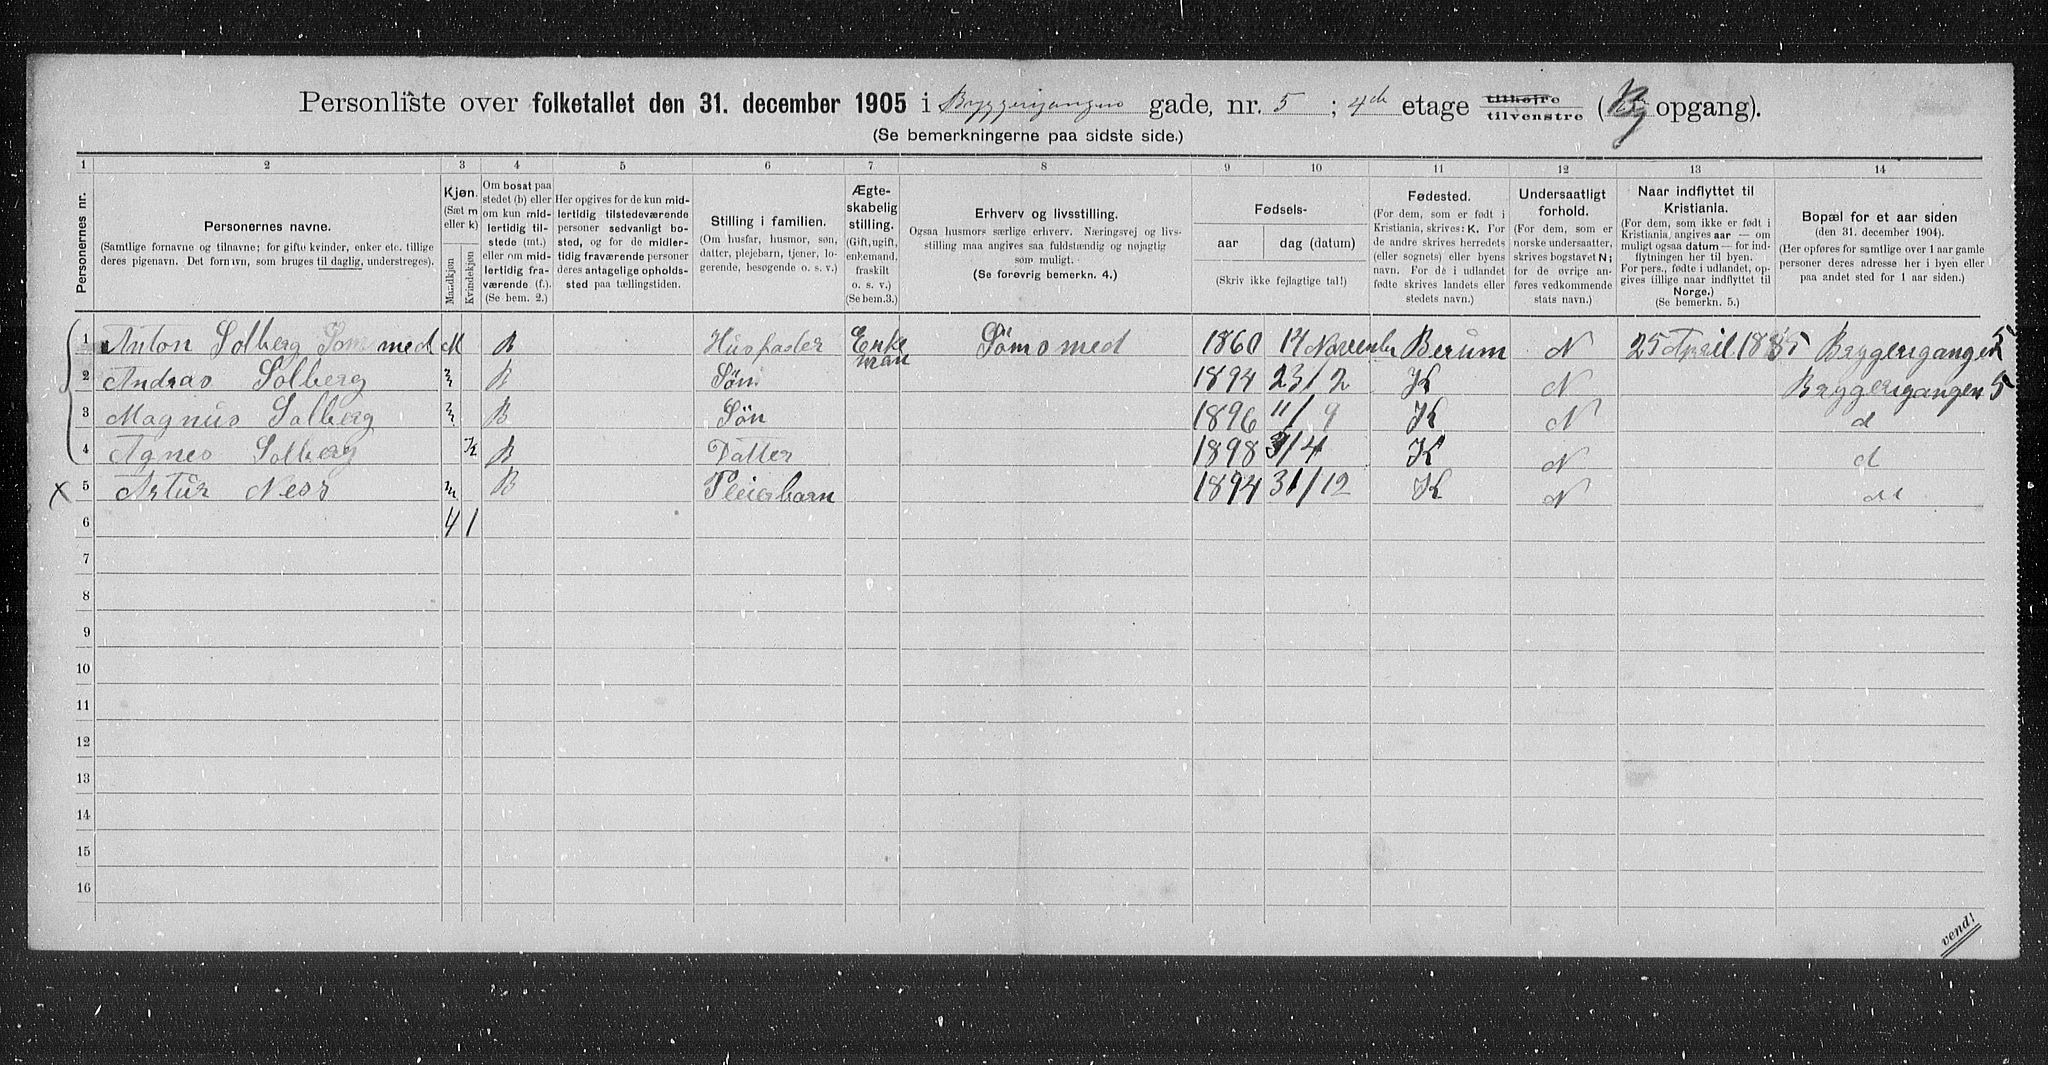 Personliste over folketallet den 31. december 1905 i Bryggerigangens gade, nr. 5 ; 4de etage tilhøjre tilvenstre ( By opgang).
(Se bemerkningerne paa sidste side.)
1 2 3 4 5 6 7 8 9 10 11 12 13 14
Personernes nr.
Personernes navne.
(Samtlige fornavne og tilnavne; for gifte kvinder, enker etc. tillige
deres pigenavn. Det fornavn, som bruges til daglig, understreges).
Kjøn.
(Sæt m
eller k)
Mandkjøn
Kvindekjøn
Om bosat paa
stedet (b) eller
om kun mid-
lertidig til-
stede (mt.)
eller om mid-
lertidig fra-
værende (f.).
(Se bem. 2.)
Her opgives for de kun mid-
lertidig tilstedeværende
personer sedvanlig bo-
sted, og for de midler-
tidig fraværende personer
deres antagelige opholds-
sted paa tællingstiden.
Stilling i familien.
(Om husfar, husmor, søn,
datter, plejebarn, tjener, lo-
gerende, besøgende o. s. v.)
Ægte-
skabelig
stilling.
(Gift, ugift,
enkemand,
fraskilt
o. s. v.)
(Se bem.3.)
Erhverv og livsstilling.
Ogsaa husmors særlige erhverv. Næringsvej og livs-
stilling maa angives saa fuldstændig og nøjagtig
som muligt.
(Se forøvrig bemerkn. 4.)
Fødsels-
aar dag (datum)
(Skriv ikke fejlagtige tal!)
Fødested.
(For dem, som er født i
Kristiania, skrives: K. For
de andre skrives herredets
(eller sognets) eller byens
navn. For de i udlandet
fødte skrives landets eller
stedets navn.)
Undersaatligt
forhold.
(For dem, som er
norske undersaatter,
skrives bogstavet N;
for de øvrige an-
føres vedkommende
stats navn.)
Naar indflyttet til
Kristiania.
(For dem, som ikke er født i
Kristiania, angives aar — om
muligt ogsaa datum — for ind-
flytningen her til byen.
For pers., fødte i udlandet, op-
gives tillige naar indflyttet til
Norge.)
(Se bemerkn. 5.)
Bopæl for et aar siden
(den 31. december 1904).
(Her opføres for samtlige over 1 aar gamle
personer deres adresse her i byen eller
paa andet sted for 1 aar siden.)
1 Anton Solberg Sømsmed M B Husfader Enkeman Sømsmed 1860 14 Novenbr Berum N 25 April 1885 Bryggerigangen 5
2 Andras Solberg m B Søn 1894 23/2 K N Bryggerigangen 5
3 Magnus Solberg m B Søn 1896 11/9 K N d
4 Agnes Solberg K B Datter 1898 3/4 K N d
X 5 Artur Ness m B Pleierbarn 1894 31/12 K N d
6 4 1
7
8
9
10
11
12
13
14
15
16
vend!